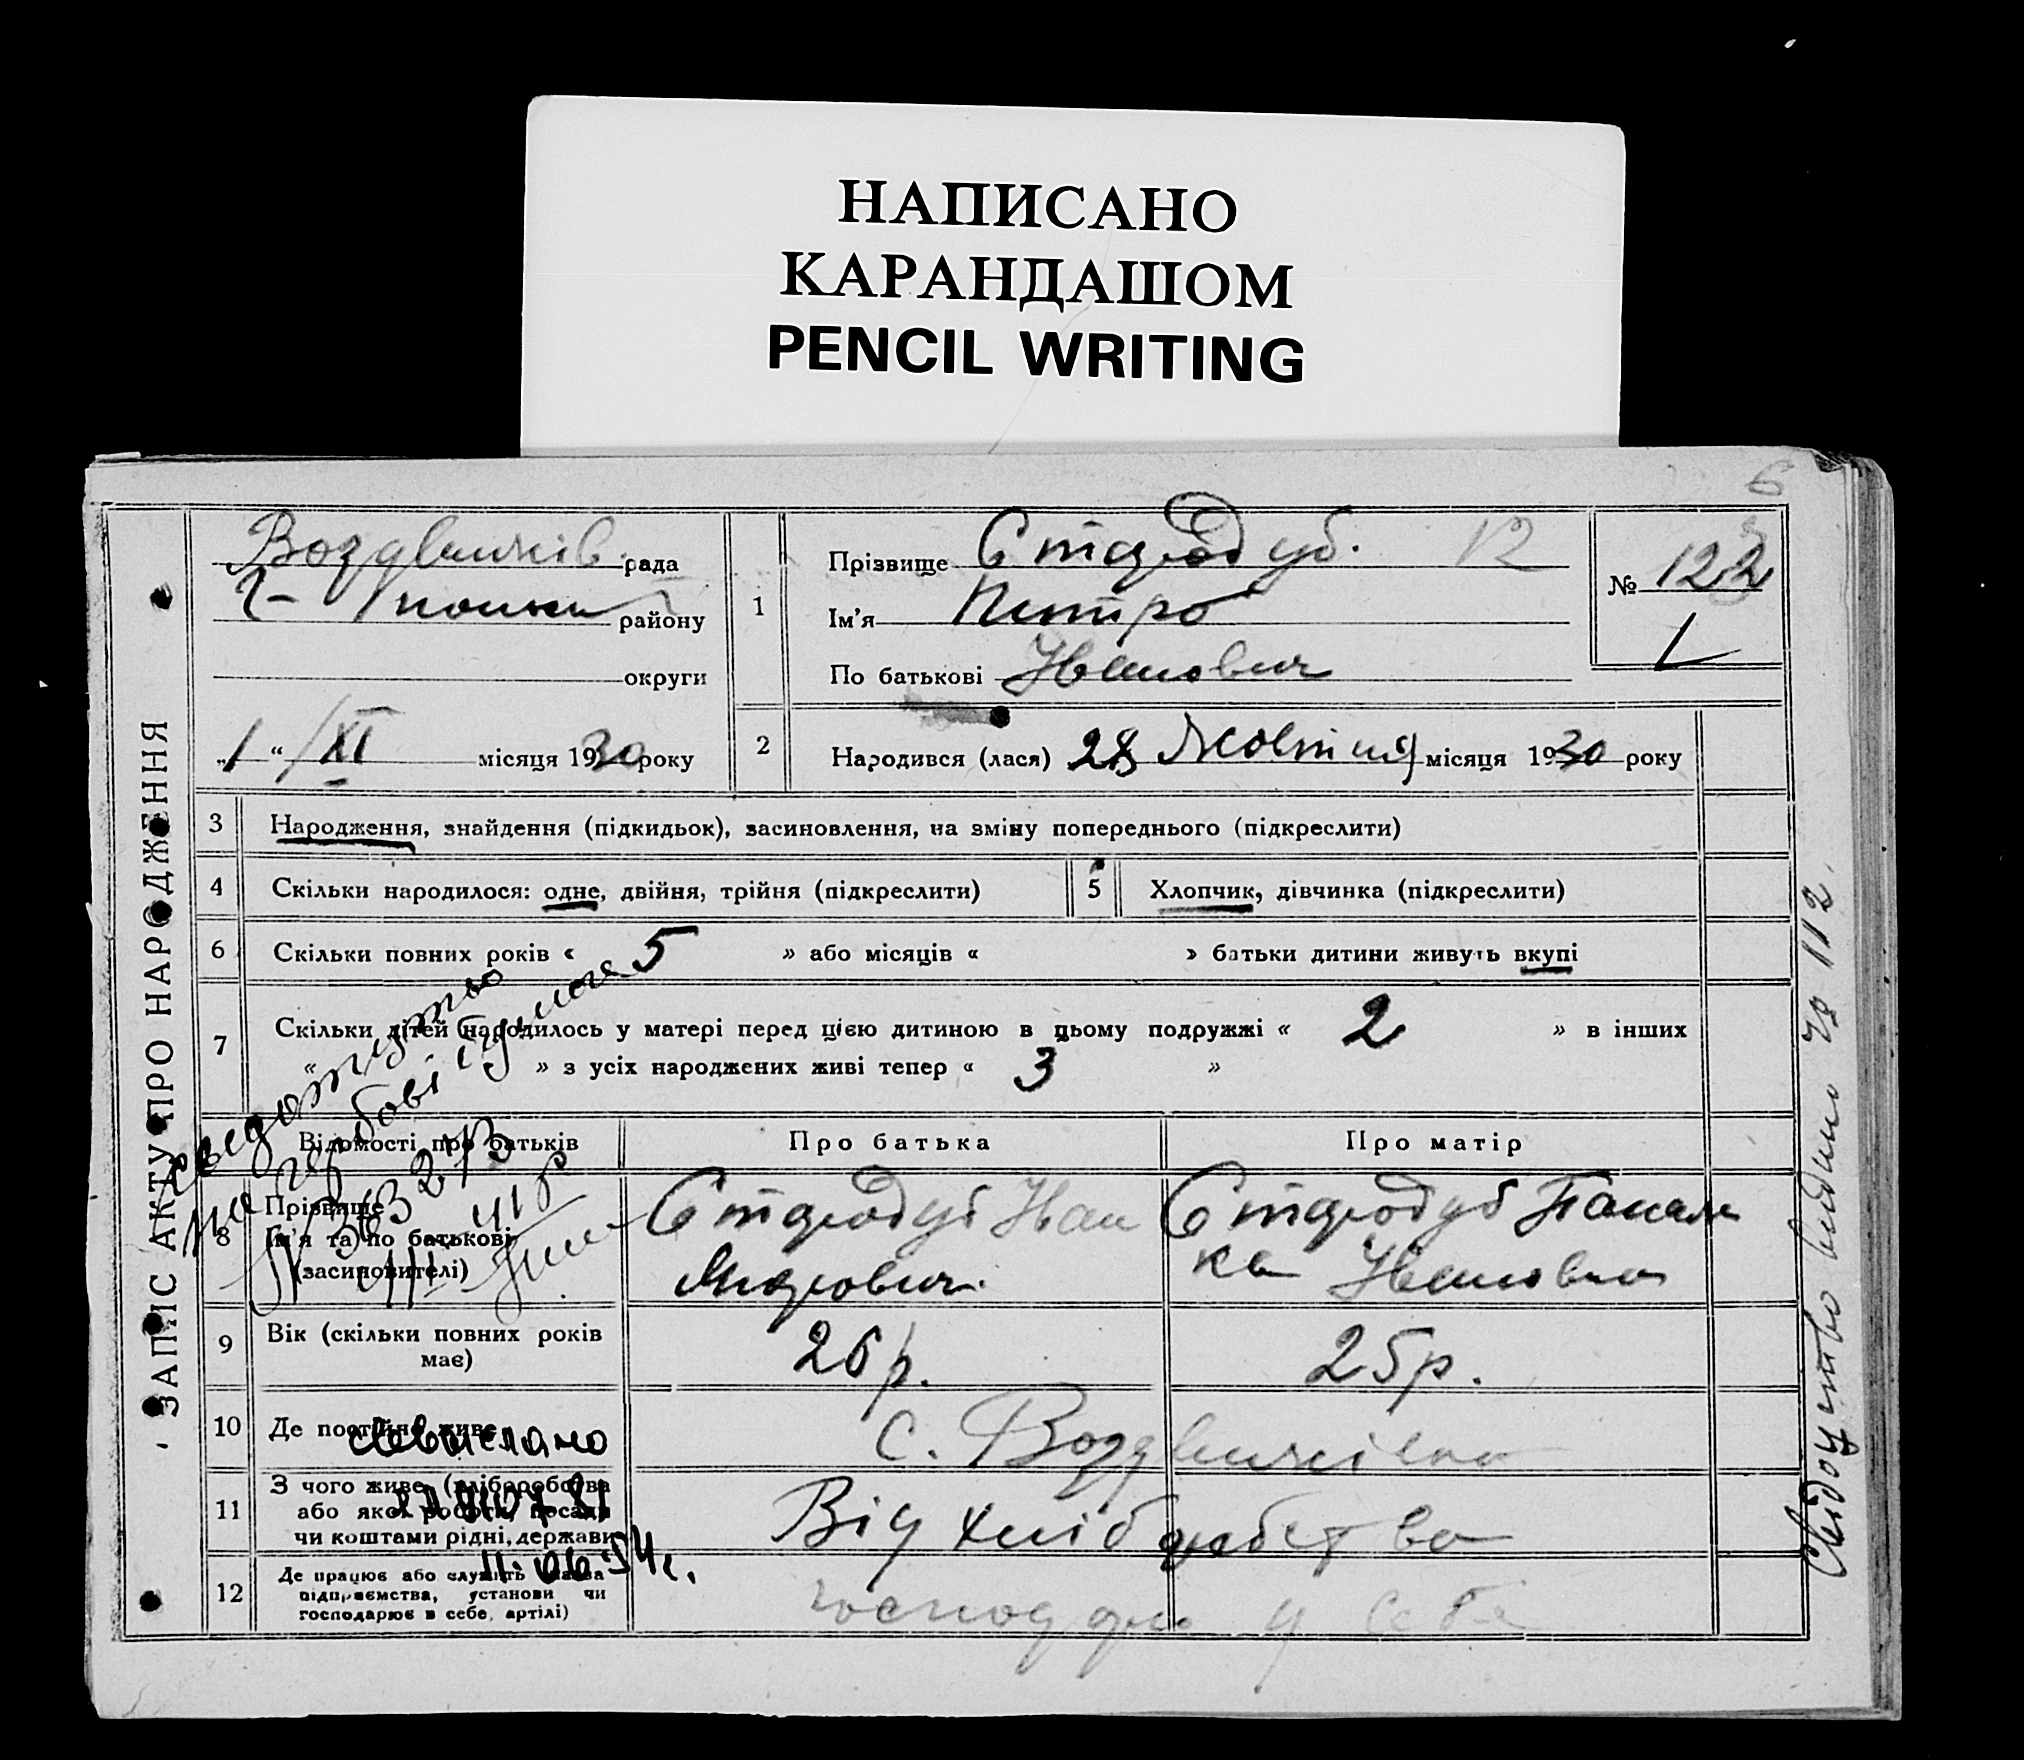 НАПИСАНО
КАРАНДАШОМ
PENCIL WRITING
6
ЗАПИС АКТУ ПРО НАРОДЖЕННЯ
Воздвижків. рада
Г-Упольськ району
округи
„1“ /XI місяця 1930 року
1
Прізвище Стародуб. 12
Ім'я Петро
По батькові Иванович
№ 122
2
Народився (лася) 28 Жовтня місяця 1930 року
3 Народження, знайдення (підкидьок), засиновлення, на зміну попереднього (підкреслити)
4 Скільки народилося: одне, двійня, трійня (підкреслити)
5 Хлопчик, дівчинка (підкреслити)
6 Скільки повних років « 5 » або місяців « » батьки дитини живуть вкупі
7 Скільки дітей народилось у матері перед цією дитиною в цьому подружжі « 2 » в інших
« » з усіх народжених живі тепер « 3 »
Відомості про батьків
Про батька
Про матір
8 Прізвище
Ім'я та по батькові
(засиновителі)
Стародуб Иван
Маркович.
Стародуб Панас
ка Ивановна
9 Вік (скільки повних років має)
26 р.
25 р.
10 Де постійно живе
с. Воздвижівка
11 З чого живе (хліборобства або якої роботи, посади чи коштами рідні, держави
Від хліборобства
12 Де працює або служить (назва підприємства, установи чи господарює в себе, артілі)
господар у себе
Свідоцтво
на гербові
№ 363273
11.06.54 г.
Свідоцтво видано 112.